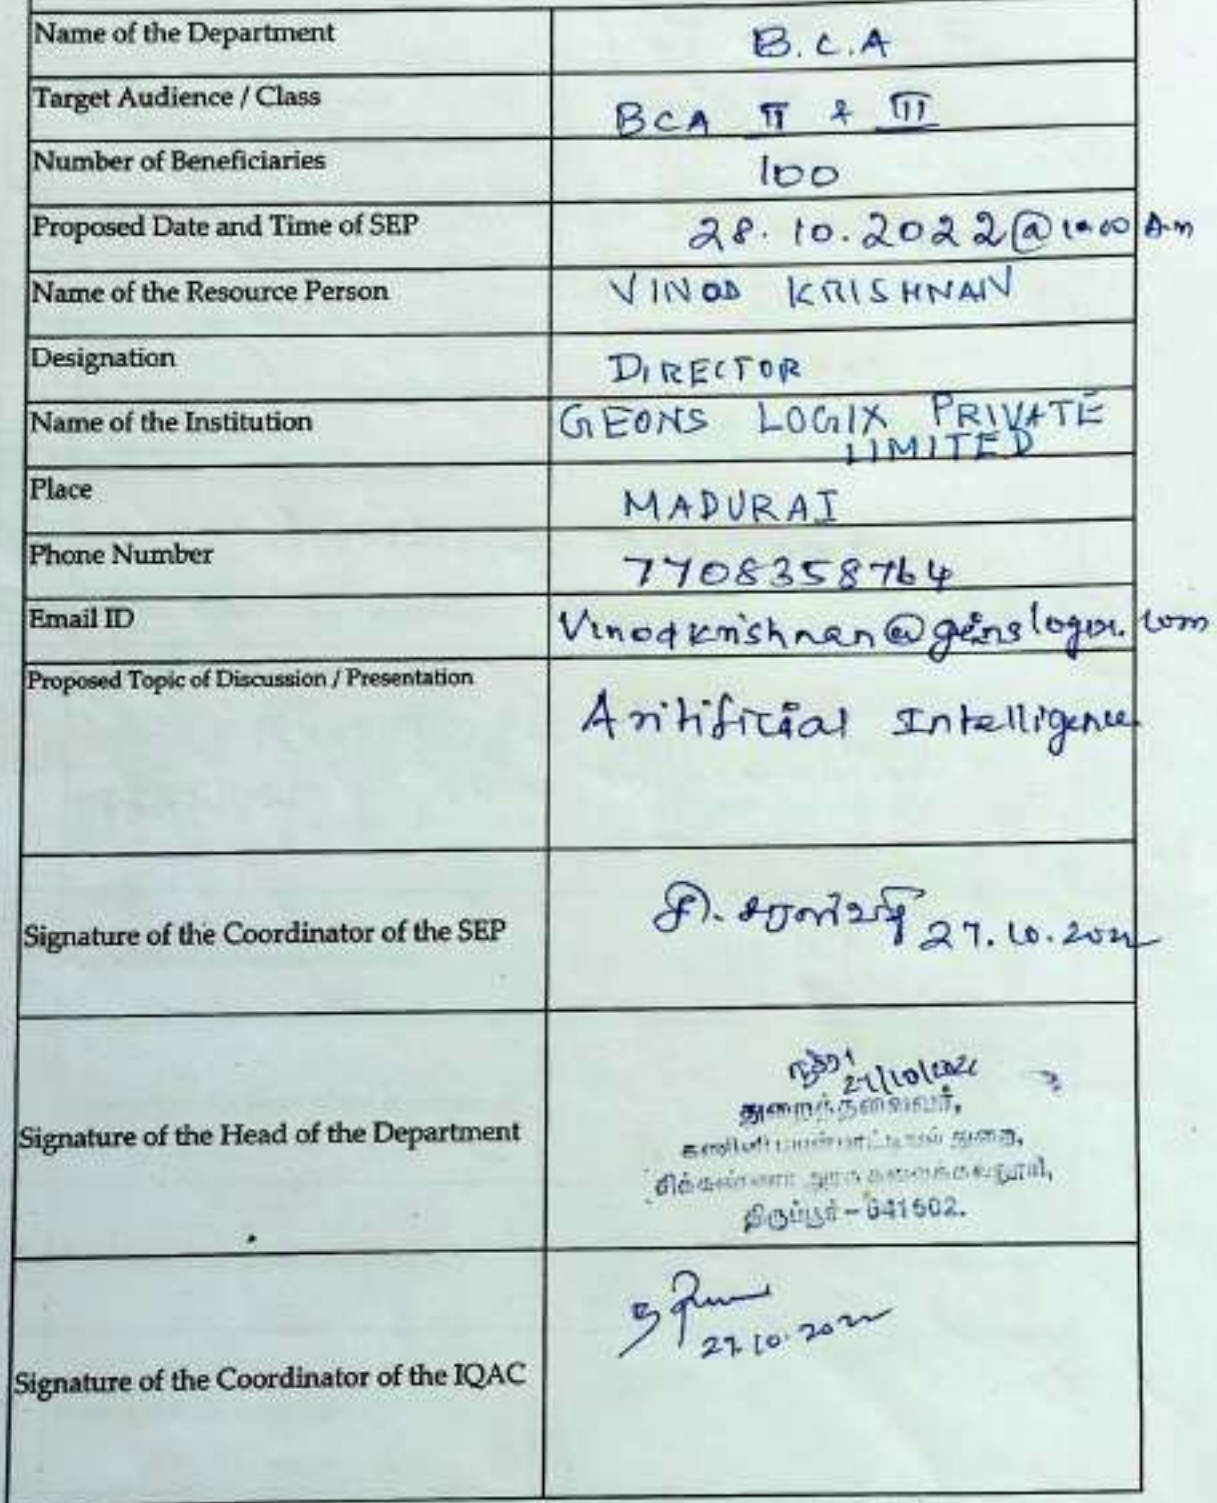 Name of the Department
B.C.A
Target Audience / Class
BCA II & III
Number of Beneficiaries
100
Proposed Date and Time of SEP
28.10.2022 @ 10.00 A.m
Name of the Resource Person
VINOD KRISHNAN
Designation
DIRECTOR
Name of the Institution
GEONS LOGIX PRIVATE
LIMITED
Place
MADURAI
Phone Number
7708358764
Email ID
Proposed Topic of Discussion / Presentation
Aritificial Intelligence
Signature of the Coordinator of the SEP
சி. சரஸ்வதி 27.10.2022
Signature of the Head of the Department
27/10/2022
துறைத்தலைவர்,
கணினி பயன்பாட்டியல் துறை,
சிக்கண்ணா அரசு கலைக்கல்லூரி,
திருப்பூர் - 641602.
Signature of the Coordinator of the IQAC
27.10.2022